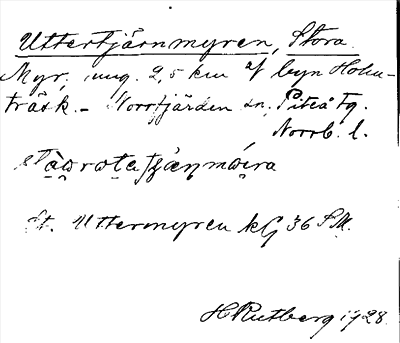 Uttertjärnmyren, Stora.
Myr, ung. 2,5 km af byn Holm-
träsk. – Norrfjärden sn, Piteå tg.
Norrb. l.
St. Uttermyren kG 36 SM.
H Rutberg 1928.